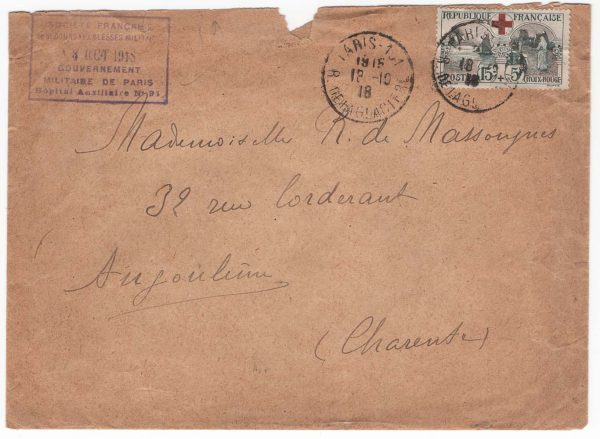 SOCIÉTÉ FRANÇAISE
DE SECOURS AUX BLESSÉS MILITAIRES
8 OCT 1918
GOUVERNEMENT
MILITAIRE DE PARIS
Hôpital Auxiliaire No 91
PARIS
1915
18-10
18
R. DE
REPUBLIQUE FRANÇAISE
POSTES 15c +5c CROIX-ROUGE
PARIS
18
18
Mademoiselle R. de Massougnes
32 rue Corderant
Angoulême
(Charente)